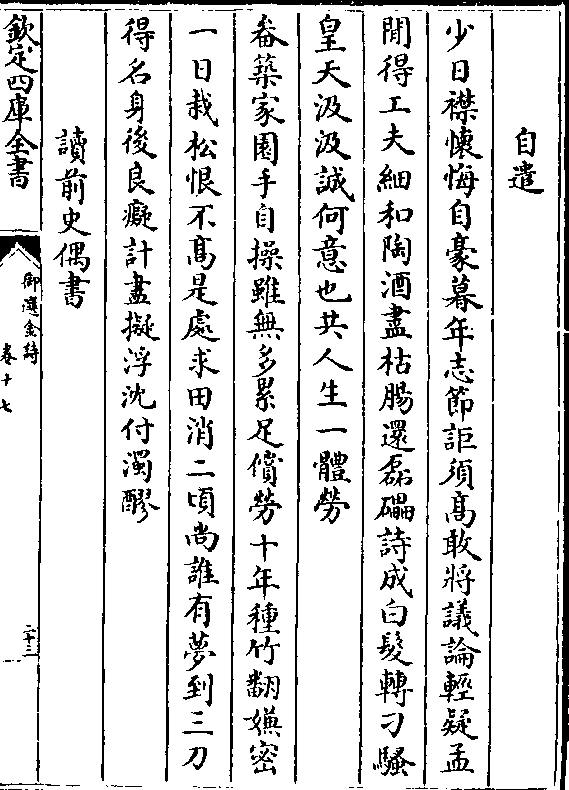 自遣
少日襟懷悔自豪暮年志節詎須髙敢將議論輕疑孟
閒得工夫細和陶酒盡枯腸還磊磊詩成白髮轉刁騷
皇天汲汲誠何意也共人生一體勞
畚築家園手自操雖無多累足償勞十年種竹翻嫌密
一日栽松恨不髙是處求田消二頃尚誰有夢到三刀
得名身後良癡計盡擬浮沈付濁醪
讀前史偶書
欽定四庫全書
御選金詩
卷十七
二十三